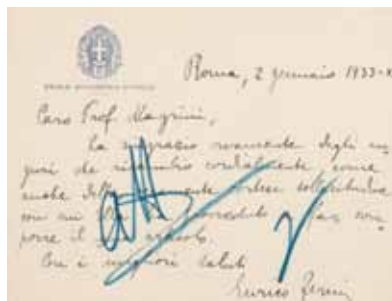 Roma, 2 gennaio 1933-XI
Caro Prof. Magrini,
La ringrazio vivamente degli au-
guri che ricambio cordialmente, come
anche della cortese sollecitudine
con cui Ella ha provveduto a far com-
porre il articolo.
Con i migliori saluti
Enrico Fermi